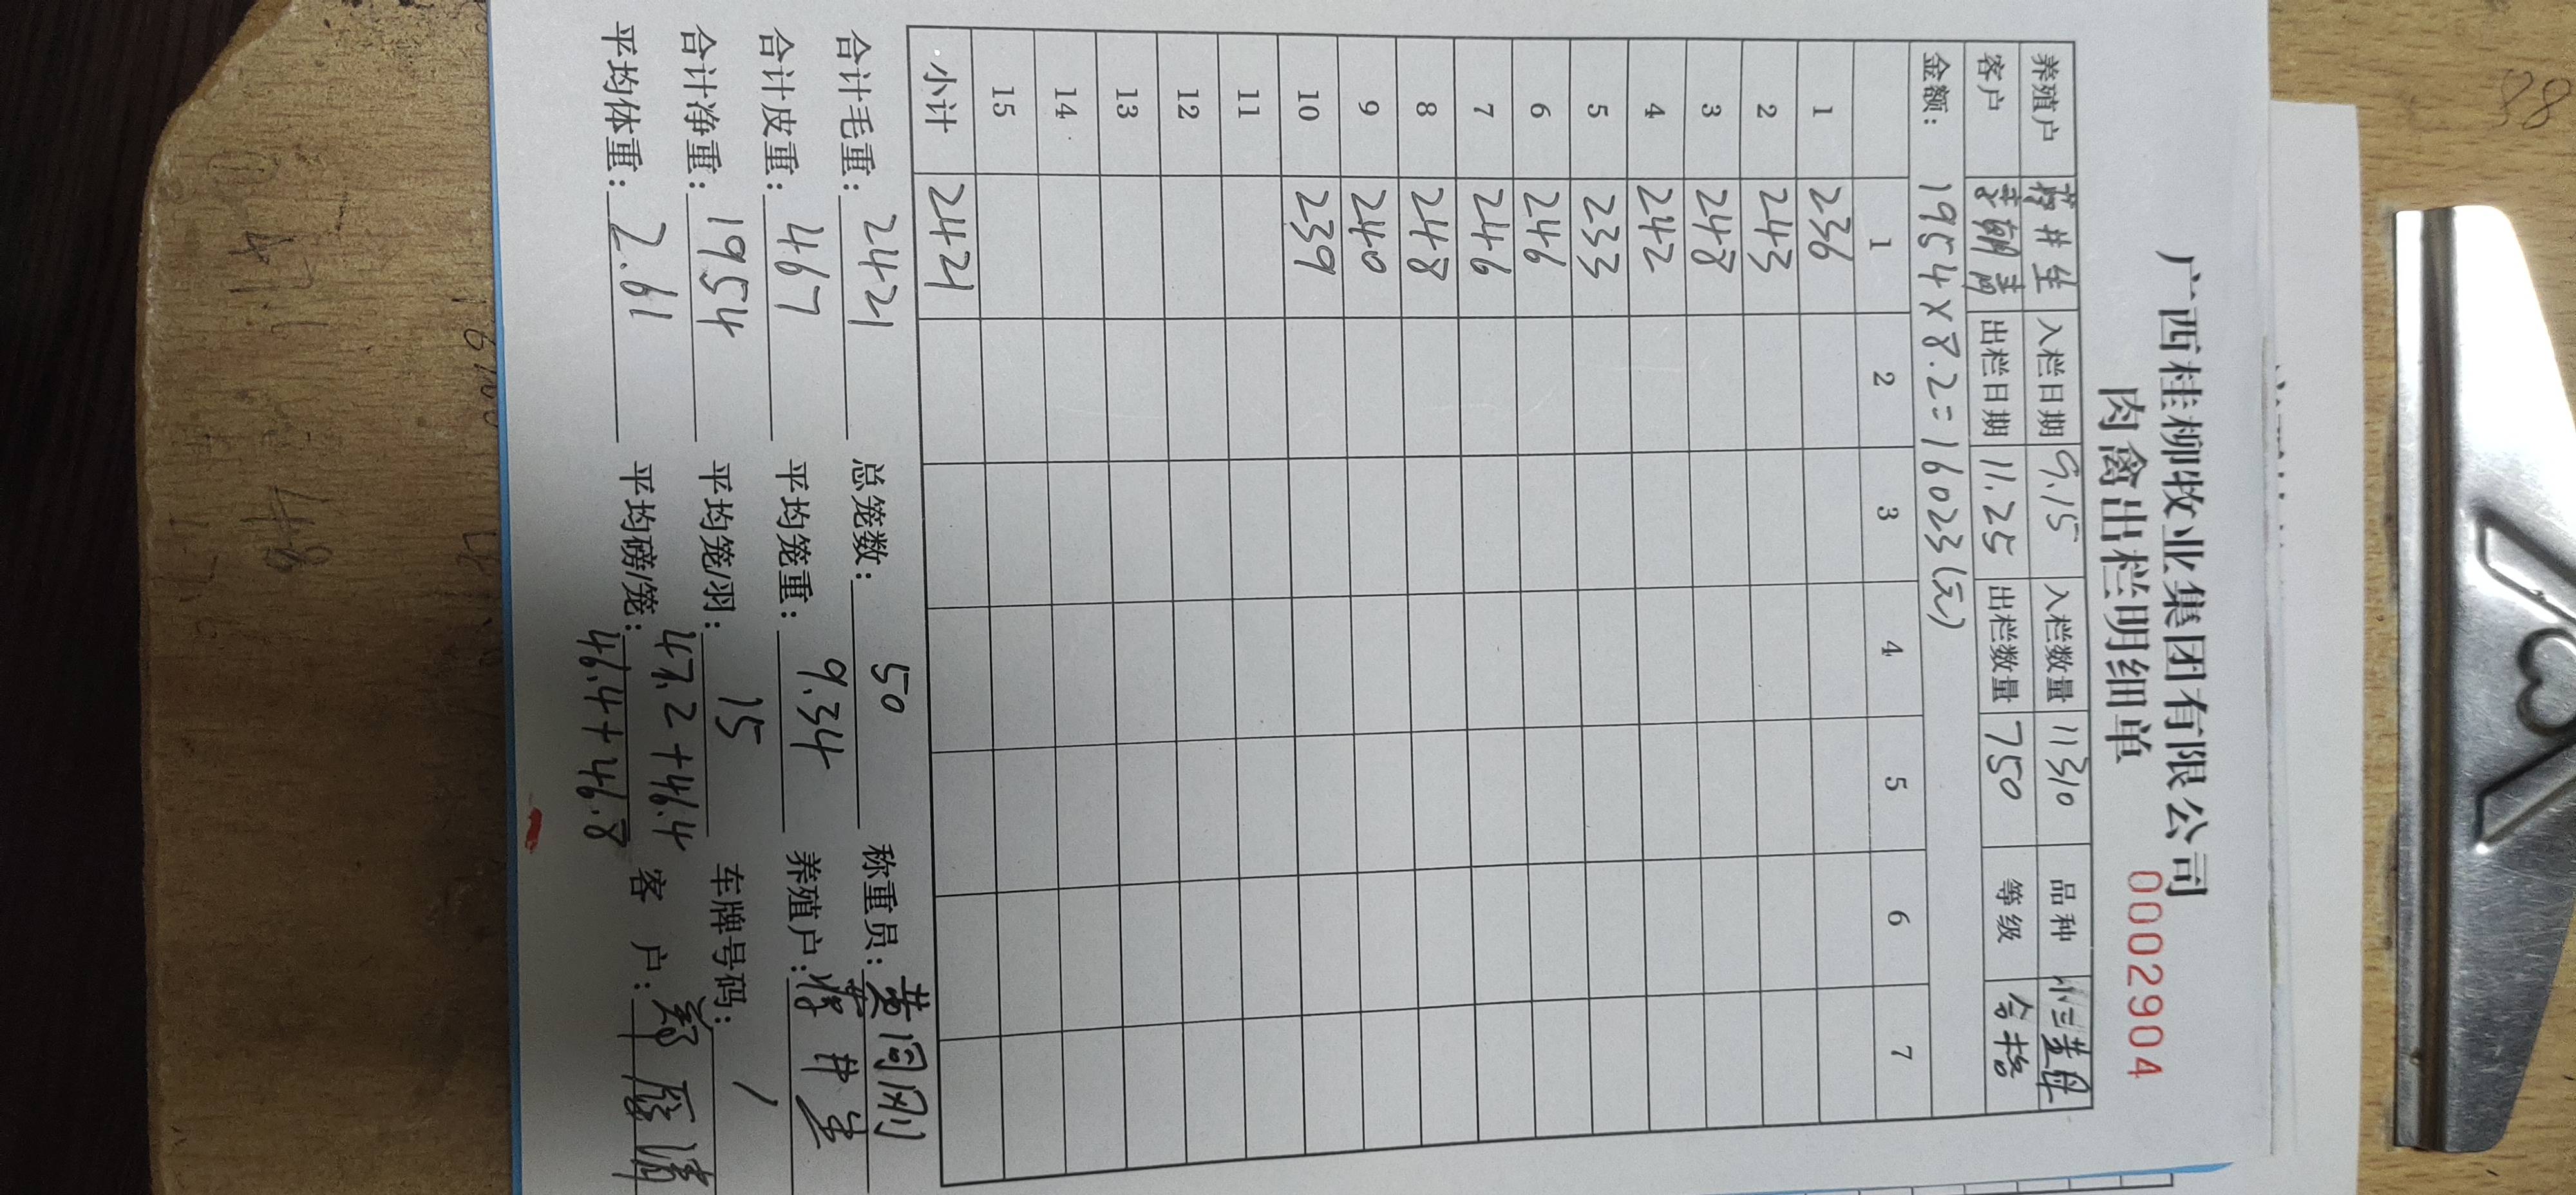 广西桂柳牧业集团有限公司
肉禽出栏明细单 00002904
养殖户 蒋井生 入栏日期 9.15 入栏数量 11310 品种 小三黄母
客户 出栏日期 11.25 出栏数量 750 等级 合格
金额: 1954×8.2=16023(元)
1 2 3 4 5 6 7
1 236
2 243
3 248
4 242
5 233
6 246
7 246
8 248
9 240
10 239
11
12
13
14
15
小计 2421
合计毛重: 2421 总笼数: 50 称重员: 黄同刚
合计皮重: 467 平均笼重: 9.34 养殖户: 蒋井生
合计净重: 1954 平均笼/羽: 15 车牌号码: /
平均体重: 2.61 平均磅/笼: 47.2+46.4 客 户:
46.4+46.8